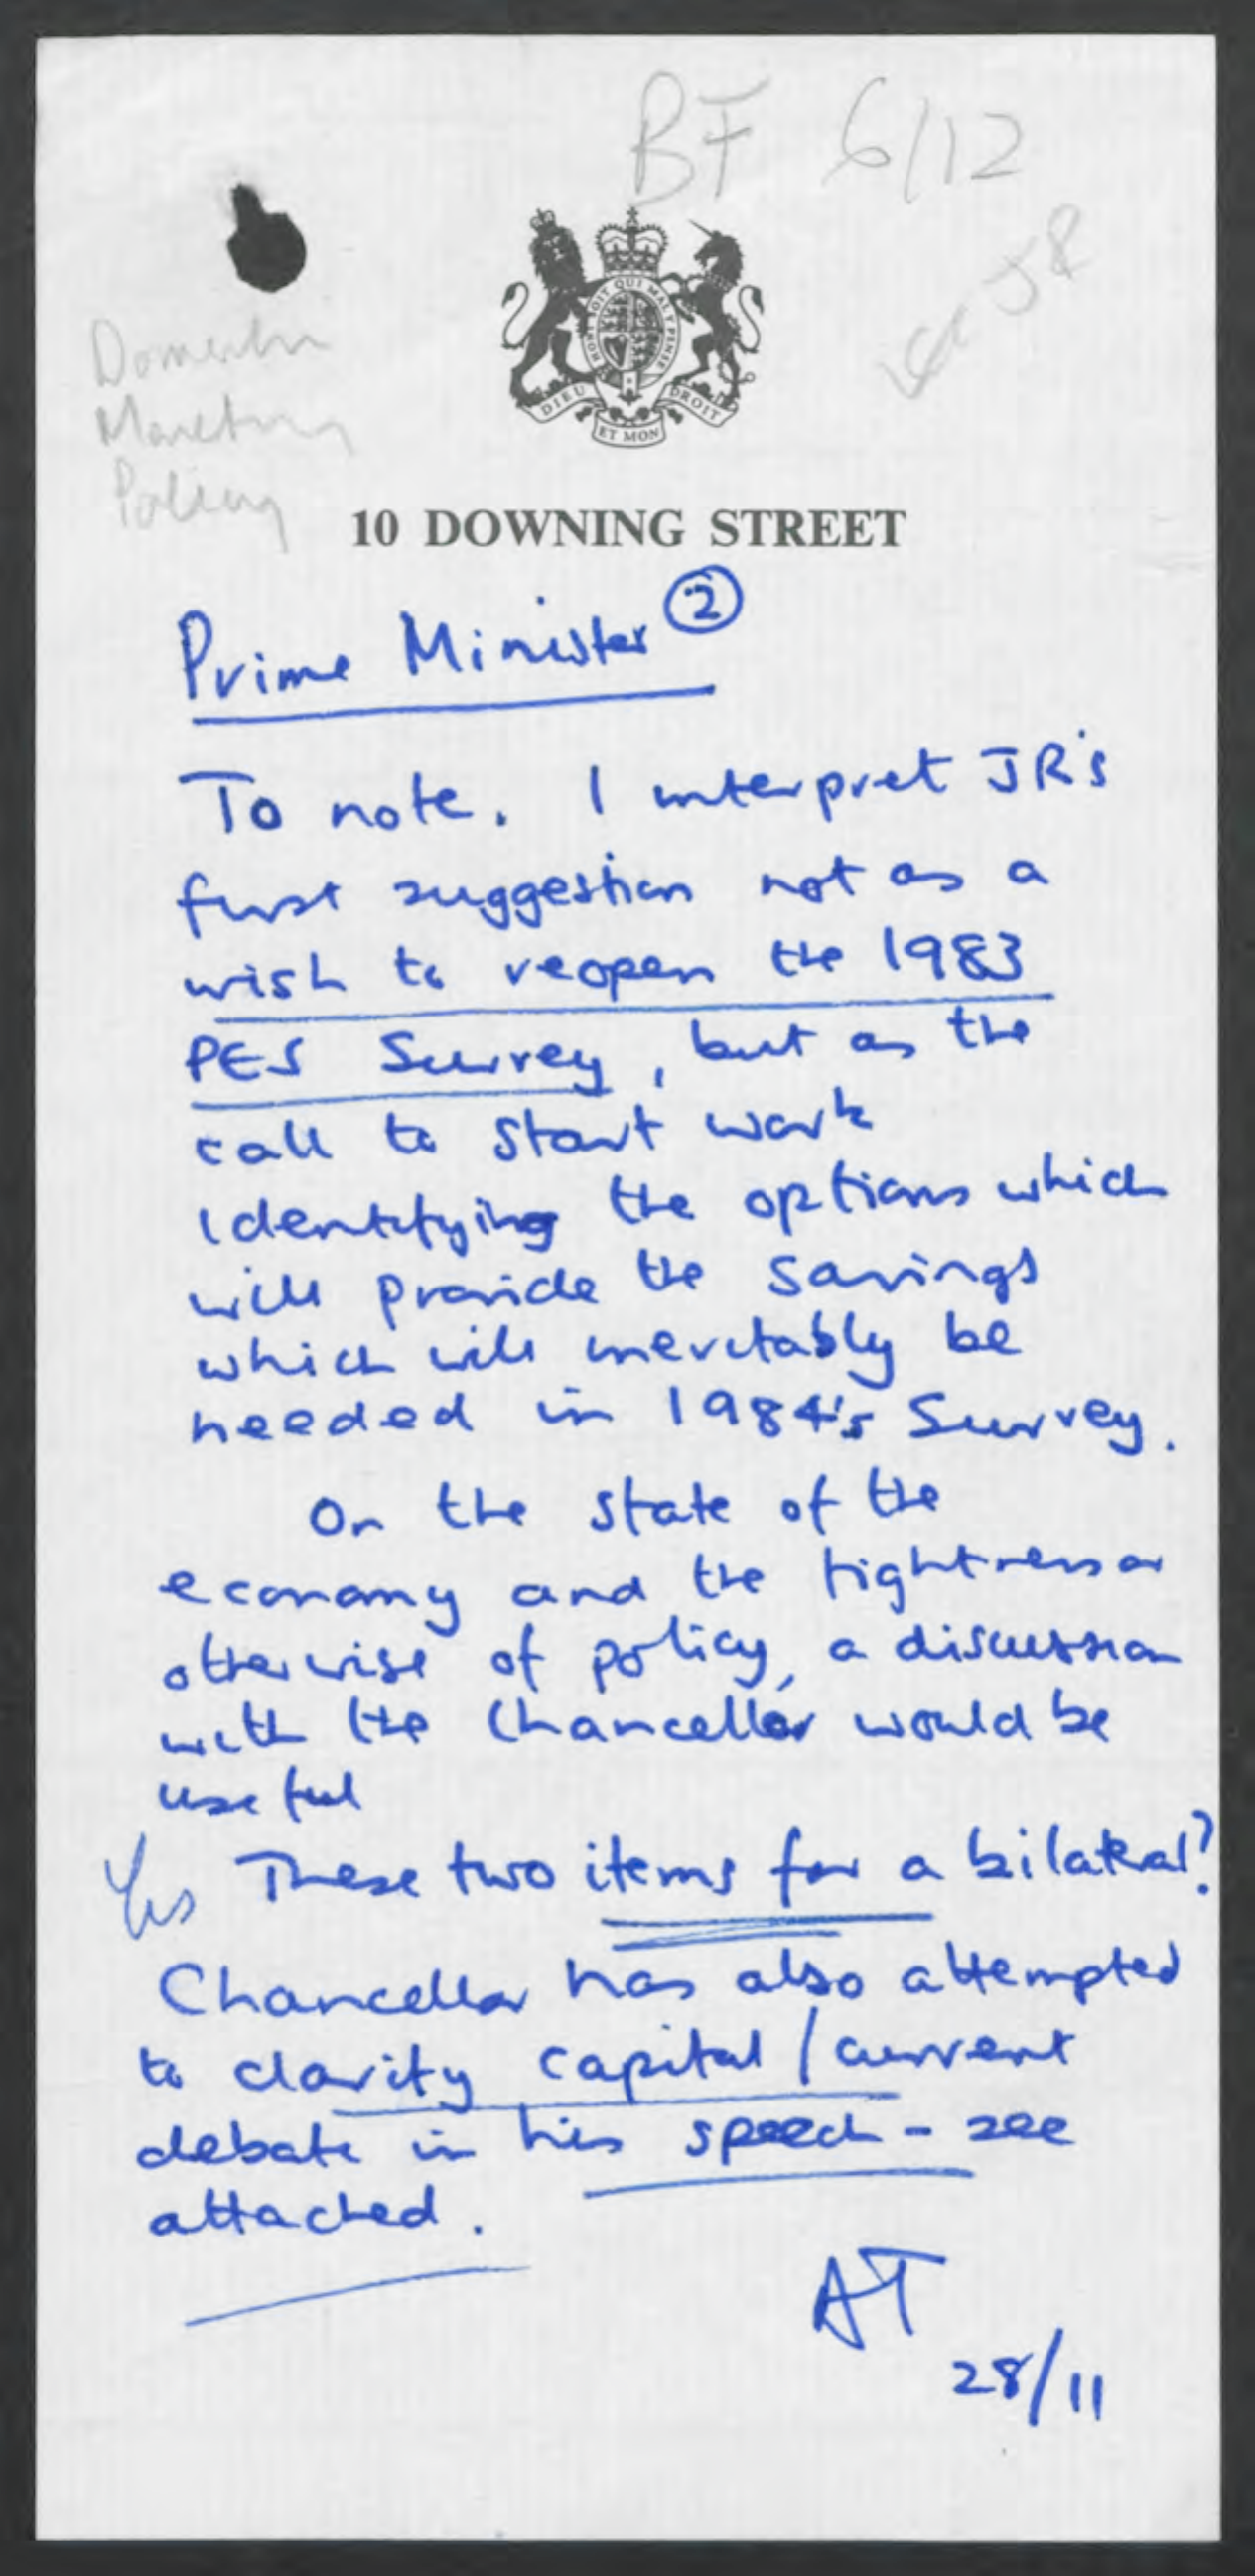 BF 6/12
Domestic
Monetary
Policy
HONI SOIT QUI MAL Y PENSE
DIEU ET MON DROIT
10 DOWNING STREET
Prime Minister ②
To note. I interpret JR's
first suggestion not as a
wish to reopen the 1983
PES Survey, but as the
call to start work
identifying the options which
will provide the savings
which will inevitably be
needed in 1984's Survey.
On the state of the
economy and the tightness or
otherwise of policy, a discussion
with the Chancellor would be
useful
Yes These two items for a bilateral?
Chancellor has also attempted
to clarify capital / current
debate in his speech - see
attached.
AT
28/11